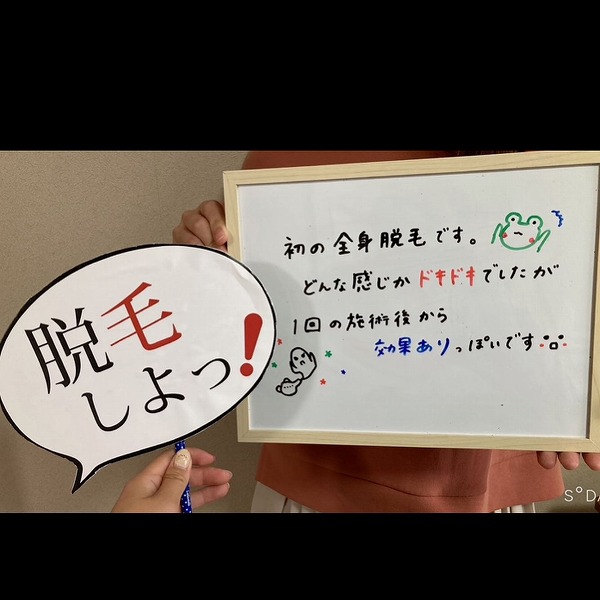 脱毛
しよっ!
初の全身脱毛です。
どんな感じかドキドキでしたが
1回の施術後から
効果ありっぽいです